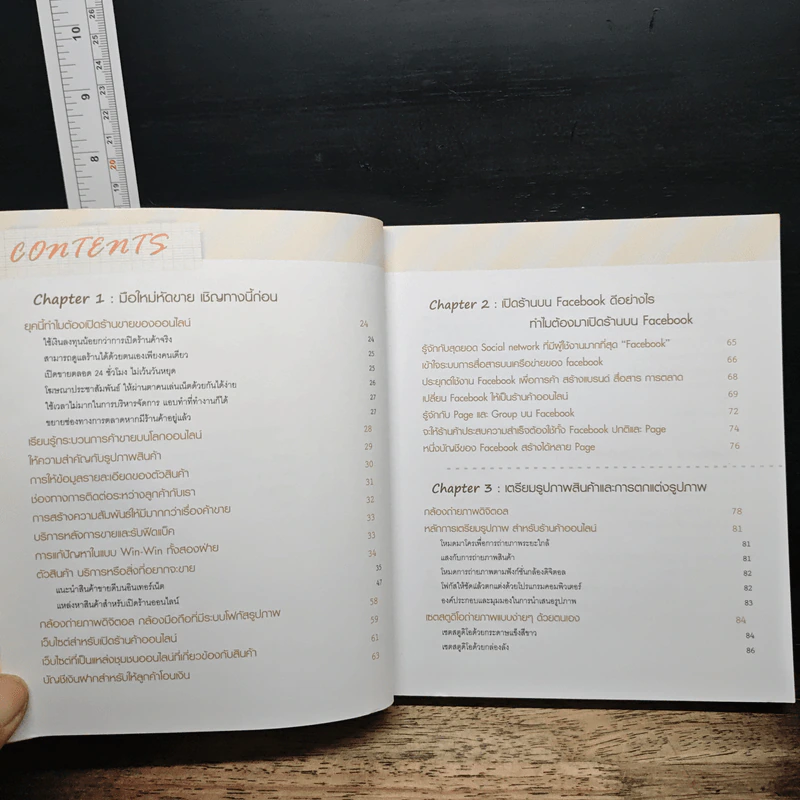 CONTENTS
Chapter 1 : มือใหม่หัดขาย เชิญทางนี้ก่อน
ยุคนี้ทำไมต้องเปิดร้านขายของออนไลน์ 24
ใช้เงินลงทุนน้อยกว่าการเปิดร้านจริง 24
สามารถดูแลร้านได้ด้วยตนเองเพียงคนเดียว 25
เปิดขายตลอด 24 ชั่วโมง ไม่เว้นวันหยุด 25
โฆษณาประชาสัมพันธ์ ให้ผ่านตาคนเล่นเน็ตด้วยกันได้ง่าย 26
ใช้เวลาไม่มากในการบริหารจัดการ แอบทำที่ทำงานก็ได้ 27
ขยายช่องทางการตลาดหากมีร้านค้าอยู่แล้ว 27
เรียนรู้กระบวนการค้าขายบนโลกออนไลน์ 28
ให้ความสำคัญกับรูปภาพสินค้า 29
การให้ข้อมูลรายละเอียดของตัวสินค้า 30
ช่องทางการติดต่อระหว่างลูกค้ากับเรา 31
การสร้างความสัมพันธ์ให้มีมากกว่าเรื่องค้าขาย 32
บริการหลังการขายและรับฟีดแบ็ค 33
การแก้ปัญหาในแบบ Win-Win ทั้งสองฝ่าย 34
ตัวสินค้า บริการหรือสิ่งที่อยากจะขาย 35
แนะนำสินค้าขายดีบนอินเทอร์เน็ต 47
แหล่งหาสินค้าสำหรับเปิดร้านออนไลน์ 58
กล้องถ่ายภาพดิจิตอล กล้องมือถือที่มีระบบโฟกัสรูปภาพ 59
เว็บไซต์สำหรับเปิดร้านค้าออนไลน์ 61
เว็บไซต์ที่เป็นแหล่งชุมชนออนไลน์ที่เกี่ยวข้องกับสินค้า 63
บัญชีเงินฝากสำหรับให้ลูกค้าโอนเงิน
Chapter 2 : เปิดร้านบน Facebook ดีอย่างไร
ทำไมต้องมาเปิดร้านบน Facebook
รู้จักกับสุดยอด Social network ที่มีผู้ใช้งานมากที่สุด "Facebook" 65
เข้าใจระบบการสื่อสารบนเครือข่ายของ facebook 66
ประยุกต์ใช้งาน Facebook เพื่อการค้า สร้างแบรนด์ สื่อสาร การตลาด 68
เปลี่ยน Facebook ให้เป็นร้านค้าออนไลน์ 69
รู้จักกับ Page และ Group บน Facebook 72
จะให้ร้านค้าประสบความสำเร็จต้องใช้ทั้ง Facebook ปกติและ Page 74
หนึ่งบัญชีของ Facebook สร้างได้หลาย Page 76
Chapter 3 : เตรียมรูปภาพสินค้าและการตกแต่งรูปภาพ
กล้องถ่ายภาพดิจิตอล 78
หลักการเตรียมรูปภาพ สำหรับร้านค้าออนไลน์ 81
โหมดมาโครเพื่อการถ่ายภาพระยะใกล้ 81
แสงกับการถ่ายภาพสินค้า 81
โหมดการถ่ายภาพตามฟังก์ชั่นกล้องดิจิตอล 82
โฟกัสให้ชัดแล้วตกแต่งด้วยโปรแกรมคอมพิวเตอร์ 82
องค์ประกอบและมุมมองในการนำเสนอรูปภาพ 83
เซตสตูดิโอถ่ายภาพแบบง่ายๆ ด้วยตนเอง 84
เซตสตูดิโอด้วยกระดาษแข็งสีขาว 84
เซตสตูดิโอด้วยกล่องลัง 86
10
9
8
26
25
24
23
22
21
20
19